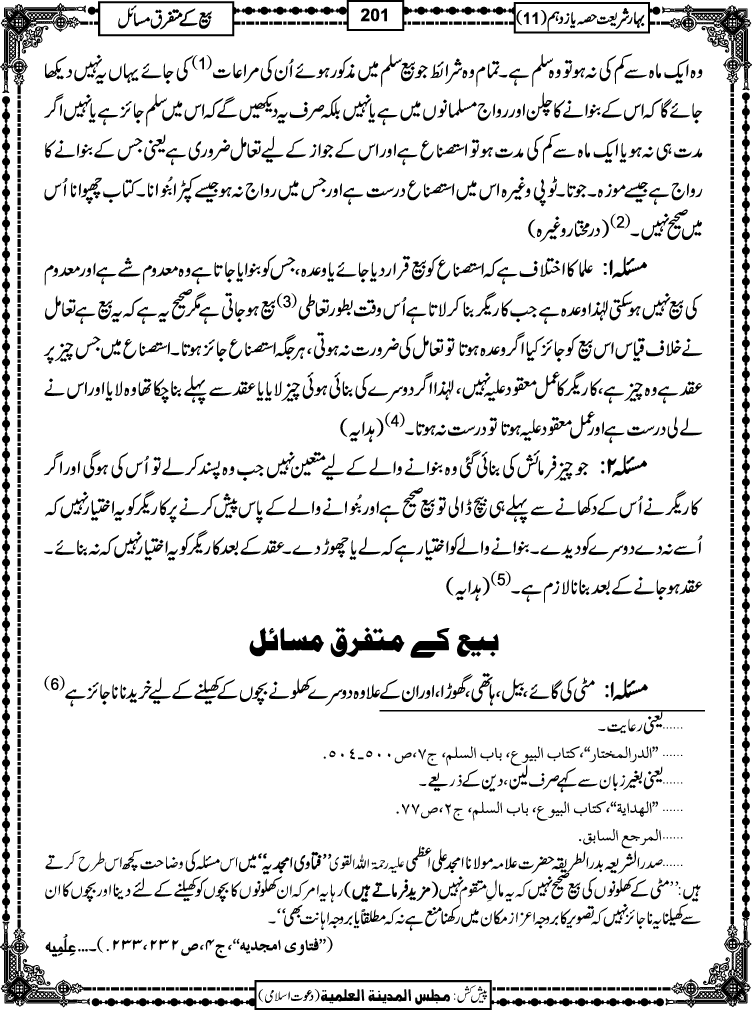 بہار شریعت حصہ یازدہم (11)
201
بیع کے متفرق مسائل
وہ ایک ماہ سے کم کی نہ ہو تو وہ سلم ہے۔ تمام وہ شرائط جو بیع سلم میں مذکور ہوئے اُن کی مراعات (1) کی جائے یہاں یہ نہیں دیکھا
جائے گا کہ اس کے بنوانے کا چلن اور رواج مسلمانوں میں ہے یا نہیں بلکہ صرف یہ دیکھیں گے کہ اس میں سلم جائز ہے یا نہیں اگر
مدت ہی نہ ہو یا ایک ماہ سے کم کی مدت ہو تو استصناع ہے اور اس کے جواز کے لیے تعامل ضروری ہے یعنی جس کے بنوانے کا
رواج ہے جیسے موزہ۔ جوتا۔ ٹوپی وغیرہ اس میں استصناع درست ہے اور جس میں رواج نہ ہو جیسے کپڑا بُنوانا۔ کتاب چھپوانا اُس
میں صحیح نہیں۔(2) (درمختار وغیرہ)
مسئلہ ۱: علما کا اختلاف ہے کہ استصناع کو بیع قرار دیا جائے یا وعدہ، جس کو بنوایا جاتا ہے وہ معدوم شے ہے اور معدوم
کی بیع نہیں ہوسکتی لہٰذا وعدہ ہے جب کاریگر بنا کر لاتا ہے اُس وقت بطور تعاطی (3) بیع ہو جاتی ہے مگر صحیح یہ ہے کہ یہ بیع ہے تعامل
نے خلاف قیاس اس بیع کو جائز کیا اگر وعدہ ہوتا تو تعامل کی ضرورت نہ ہوتی، ہر جگہ استصناع جائز ہوتا۔ استصناع میں جس چیز پر
عقد ہے وہ چیز ہے، کاریگر کا عمل معقود علیہ نہیں، لہٰذا اگر دوسرے کی بنائی ہوئی چیز لایا یا عقد سے پہلے بنا چکا تھا وہ لایا اور اس نے
لے لی درست ہے اور عمل معقود علیہ ہوتا تو درست نہ ہوتا۔(4) (ہدایہ)
مسئلہ ۲: جو چیز فرمائش کی بنائی گئی وہ بنوانے والے کے لیے متعین نہیں جب وہ پسند کرلے تو اُس کی ہوگی اور اگر
کاریگر نے اُس کے دکھانے سے پہلے ہی بیچ ڈالی تو بیع صحیح ہے اور بنُوانے والے کے پاس پیش کرنے پر کاریگر کو یہ اختیار نہیں کہ
اُسے نہ دے دوسرے کو دیدے۔ بنوانے والے کو اختیار ہے کہ لے یا چھوڑ دے۔ عقد کے بعد کاریگر کو یہ اختیار نہیں کہ نہ بنائے۔
عقد ہو جانے کے بعد بنانا لازم ہے۔(5) (ہدایہ)
بیع کے متفرق مسائل
مسئلہ ۱: مٹی کی گائے، بیل، ہاتھی، گھوڑا، اور ان کے علاوہ دوسرے کھلونے بچوں کے کھیلنے کے لیے خریدنا ناجائز ہے (6)
......یعنی رعایت۔
...... "الدرالمختار"، کتاب البیوع، باب السلم، ج۷، ص۵۰۰۔۵۰٤.
......یعنی بغیر زبان سے کہے صرف لین، دین کے ذریعے۔
...... "الهدایة"، کتاب البیوع، باب السلم، ج۲، ص۷۷.
......المرجع السابق.
......صدر الشریعہ بدر الطریقہ حضرت علامہ مولانا امجد علی اعظمی علیہ رحمۃ اللہ القوی "فتاوی امجدیہ" میں اس مسئلہ کی وضاحت کچھ اس طرح کرتے
ہیں: "مٹی کے کھلونوں کی بیع صحیح نہیں کہ یہ مال متقوم نہیں (مزید فرماتے ہیں) رہا یہ امر کہ ان کھلونوں کا بچوں کو کھیلنے کے لئے دینا اور بچوں کا ان
سے کھیلنا یہ ناجائز نہیں کہ تصویر کا بروجہ اعزاز مکان میں رکھنا منع ہے نہ کہ مطلقاً یا بروجہ اہانت بھی"۔
("فتاوی امجدیہ"، ج٤، ص۲۳۲، ۲۳۳.)۔...عِلْمِیه
پیش کش: مجلس المدینة العلمیة (دعوت اسلامی)